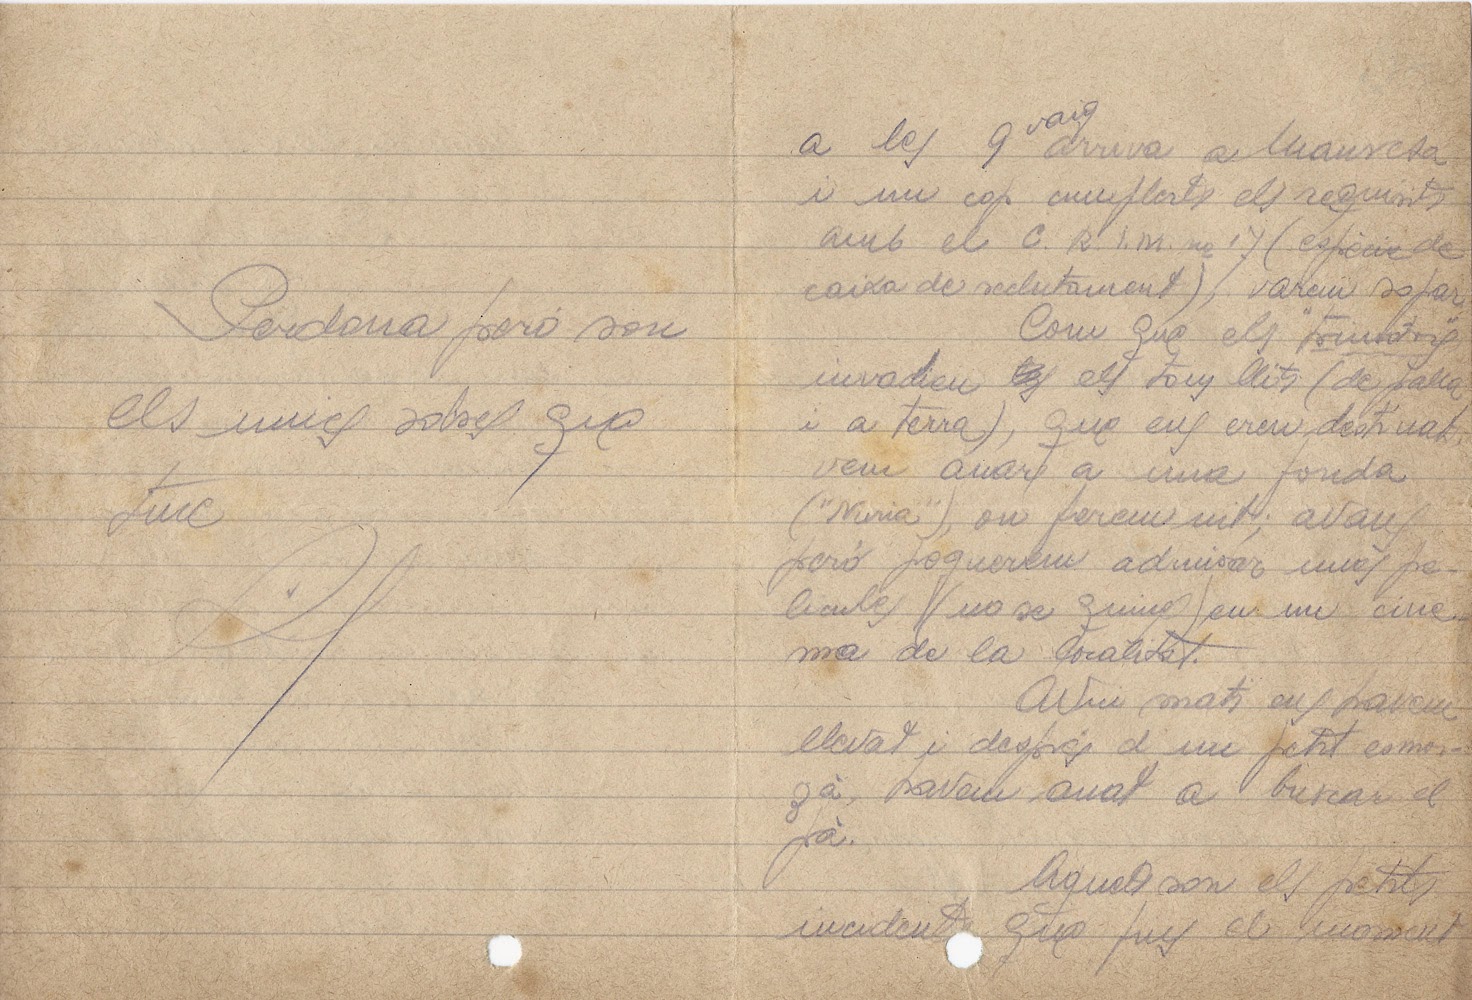 Perdona però son
els unics sobres que
tinc
a les 9 vaig arriva a Manresa
i un cop cumplerts els requisits
amb el C. R. I. M. nº 17 (especie de
caixa de reclutament), varem sopar.
Com que els
invadien els tous llits (de palla
i a terra), que ens eren destinats,
vem anars a una fonda
("Nuria"), on ferem nit; avans
però poguerem admirar unes pe-
licules (no se quines) en un cine-
ma de la localitat.
Avui mati ens havem
llevat i després d un petit esmor-
zà, havem anat a buscar el
pà.
Aquets son els petits
incidents que fins el moment